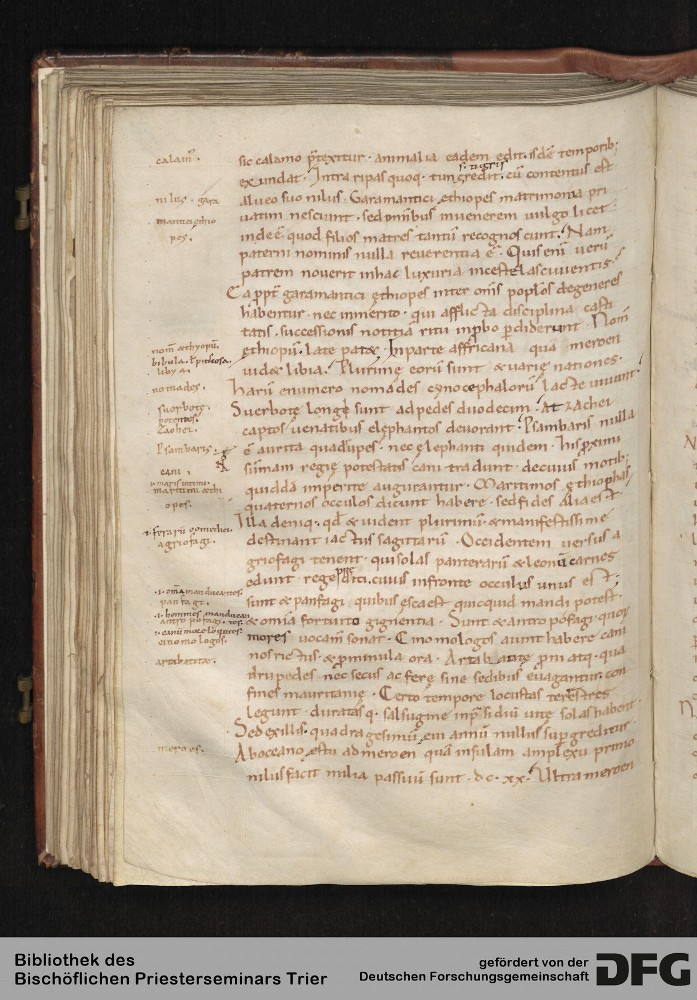 calam᷒.
nilus. gara
mantici ethio
pes.
nom̄ æthyopū.
bibula. l̄ piteosa.
libya.
nomades.
syorbote.
potentes.
zacher.
Psambaris.
cani.
maritimi æthi
opes.
agriofagi.
.i. om̄a manducantes.
panfagi.
.i. homines manducan
antropofagi. tes.
.i. canū more loquentes.
cinomologos.
artabatitæ.
meroes.
sic calamo p̄texitur. animalia eadem edit. isdē temporib;
exundat. Intra ripas quoq. tungredit. cū contentus est
si tigris
alveo suo nilus. Garamantici ęthiopes matrimonia pri
uatim nesciunt. sed omnibus in uenerem uulgo licet.
inde ē. quod filios matres tantū recognoscunt. Nam
paterni nominis nulla reuerentia ē. Quis enī verū
patrem nouerit in hac luxuria inceste lasciuientis.
Ea ppt̄ garamantici ęthiopes inter om̄s poplos degeneres
habentur. nec inmerito. qui afflicta disciplina casti
tatis. successionis notitiā ritu inpbo pdiderunt. Nom̄
ęthiopū. late patæ. In parte affricana qua meroen
uidæ libia. Plurime eorū sunt & uarię nationes.
harū e numero nomades cynocephalorū lacte uiuunt.
Syerbotę longę sunt ad pedes duodecim. At zachei
captos uenatibus elephantos deuorant. Psambaris nulla
ē aurita quadrupes. nec elephanti quidem. his pximi
sūmam regię potestatis cani tradunt. de cuius motib;
quiddā imperite augurantur. Maritimos ęthiophas
quaternos occulos dicunt habere. sed fides alia est.
Illa deniq. qd & uident plurimū. & manifestissime
destinant iactus sagittarū. Occidentem versus a
griofagi tenent. qui solas panterarū & leonū carnes
edunt. rege pdiți. cuius in fronte occulus unus est;
sunt & panfagi. quibus esca est quicquid mandi potest.
& omīa fortuito gignentia. Sunt & antropofagi quos
mores uocam̄ sonat. Cinomologos aiunt habere cani
nos rictus. & pminula ora. Artabatitę pni atq. qua
drupedes. nec secus ac ferę sine sedibus euagantur. con
fines mauritanię. Certo tempore locustas terestres
legunt. duratasq. salsugine in psidiū uitę solas habent.
Sed ex illis. quadragesimū eui annū nullus supgreditur.
Ab oceano ęstu ad meroen quā insulam amplexu primo
nilus facit milia passuū sunt. dc. xx. Ultra meroen
Bibliothek des
Bischöflichen Priesterseminars Trier
gefördert von der
Deutschen Forschungsgemeinschaft
DFG